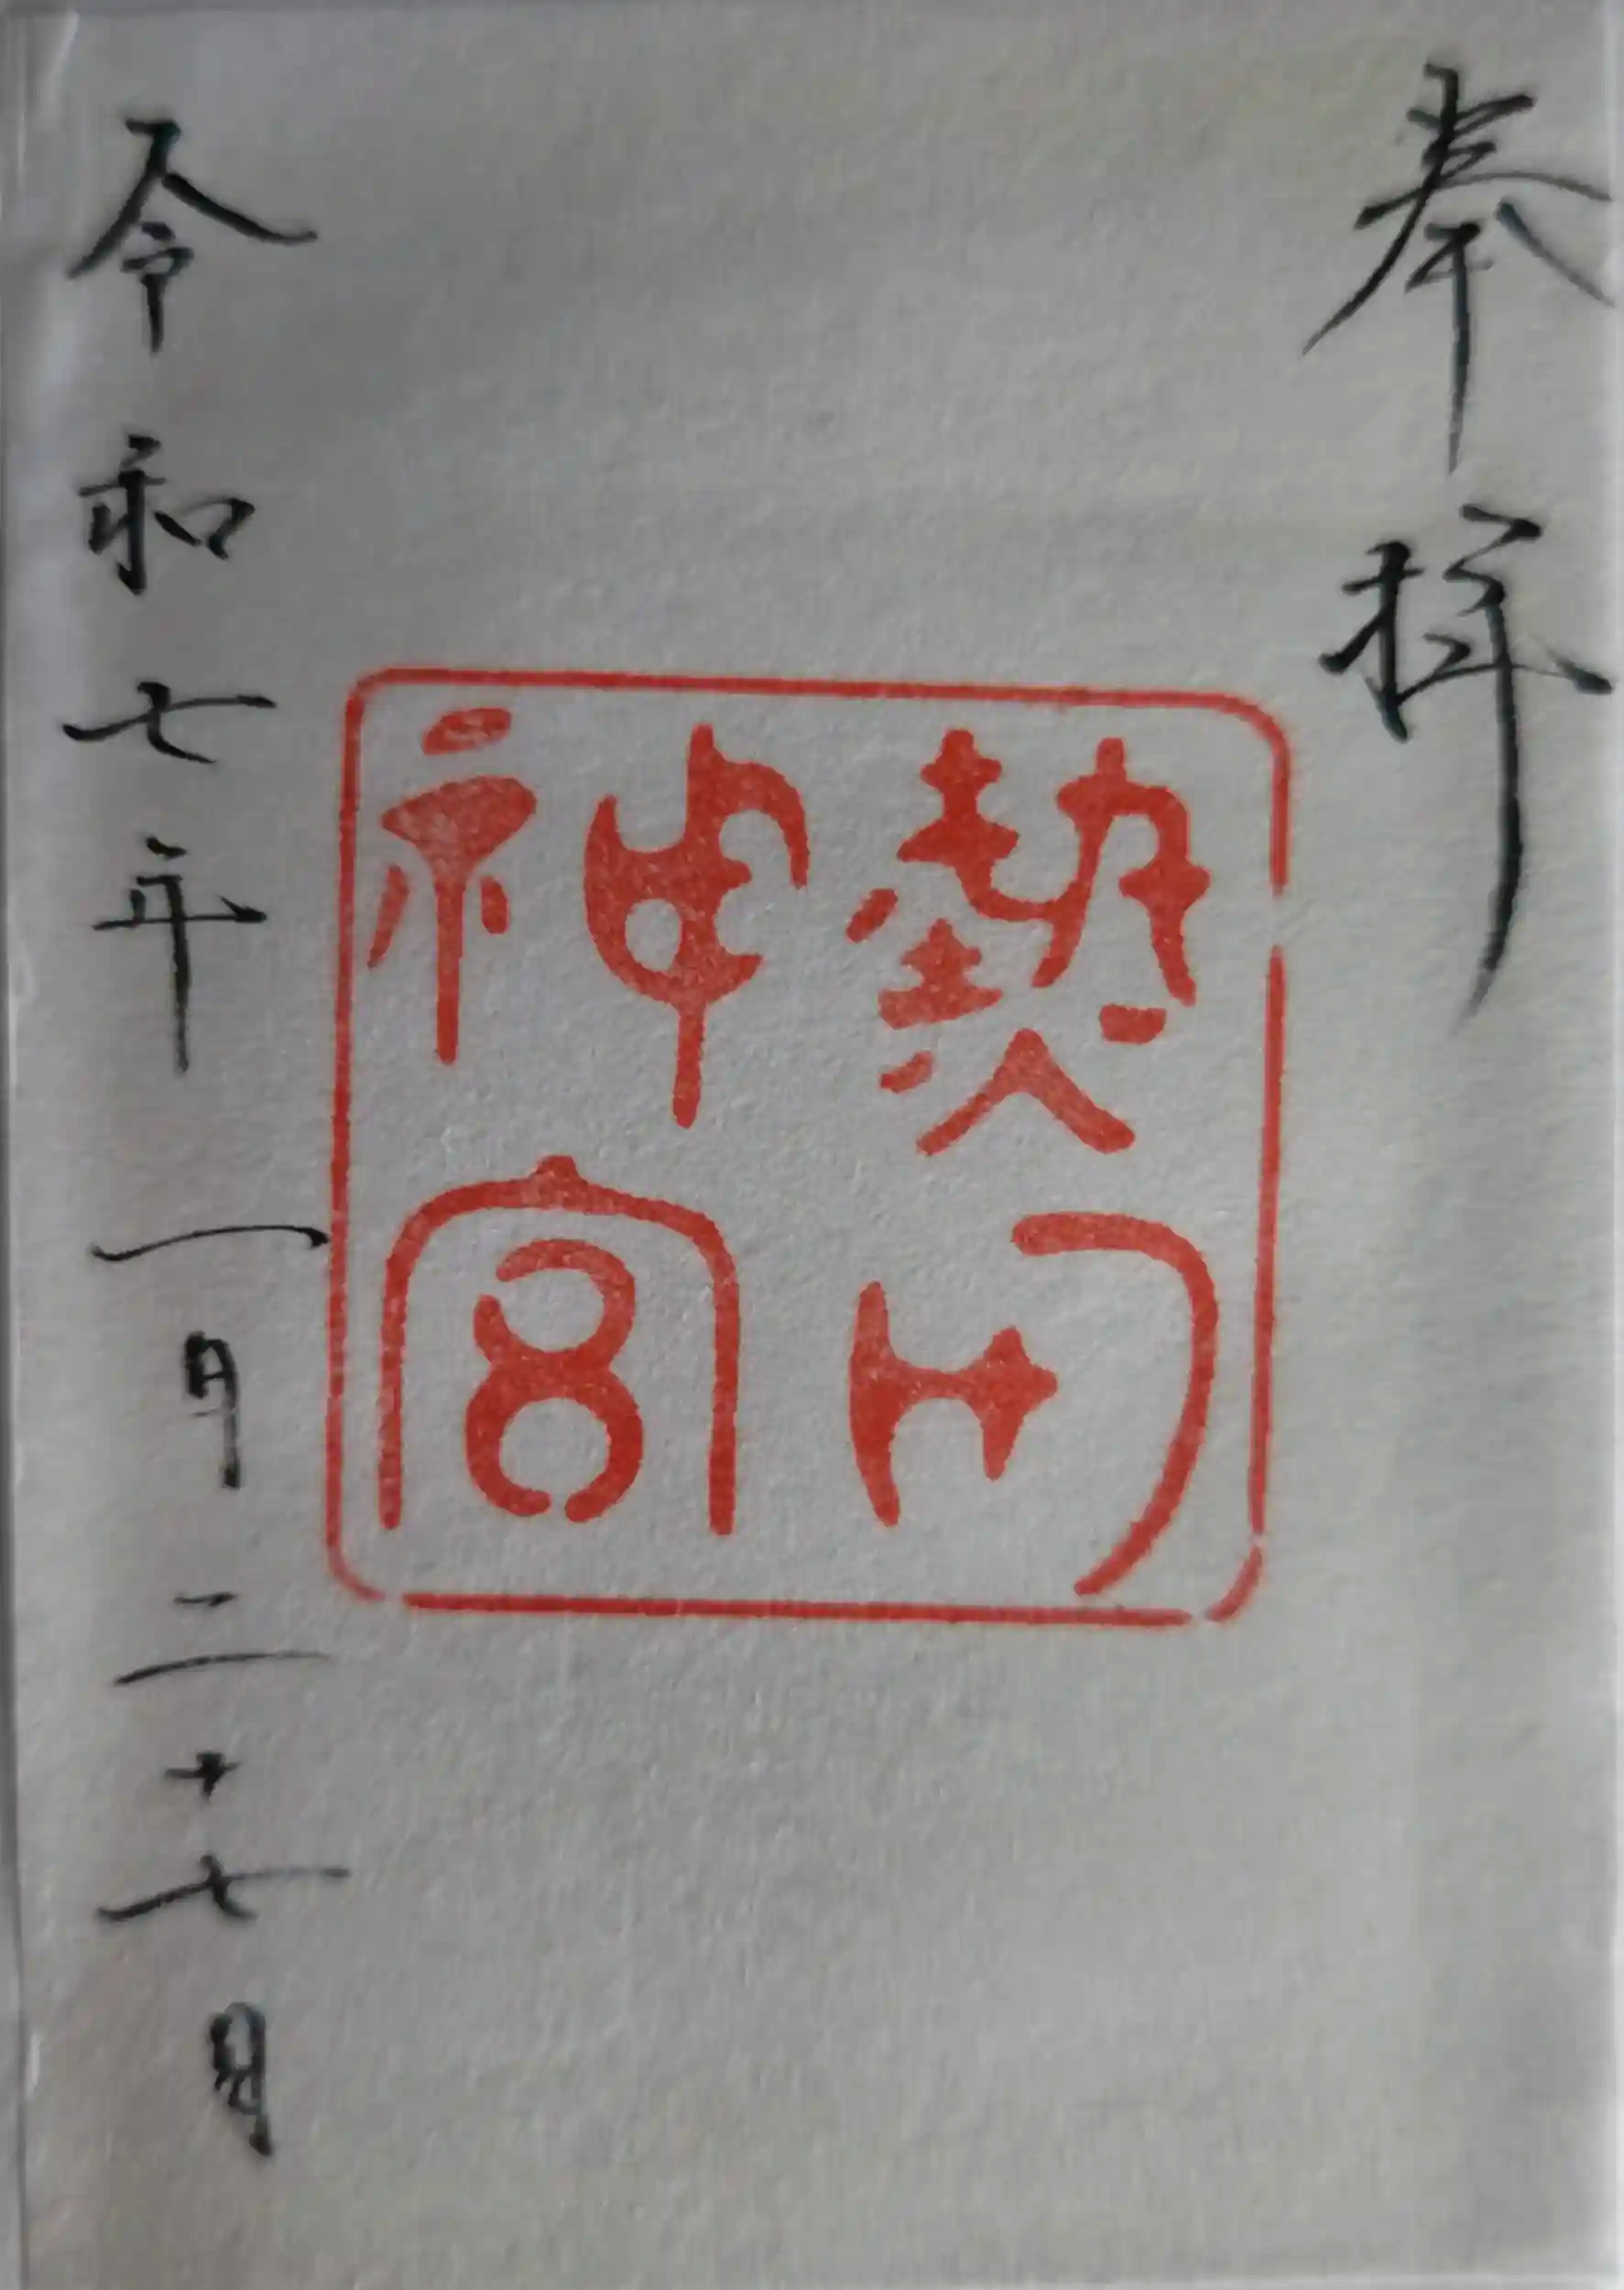 奉拝
熱田
神宮
令和七年一月二十七日